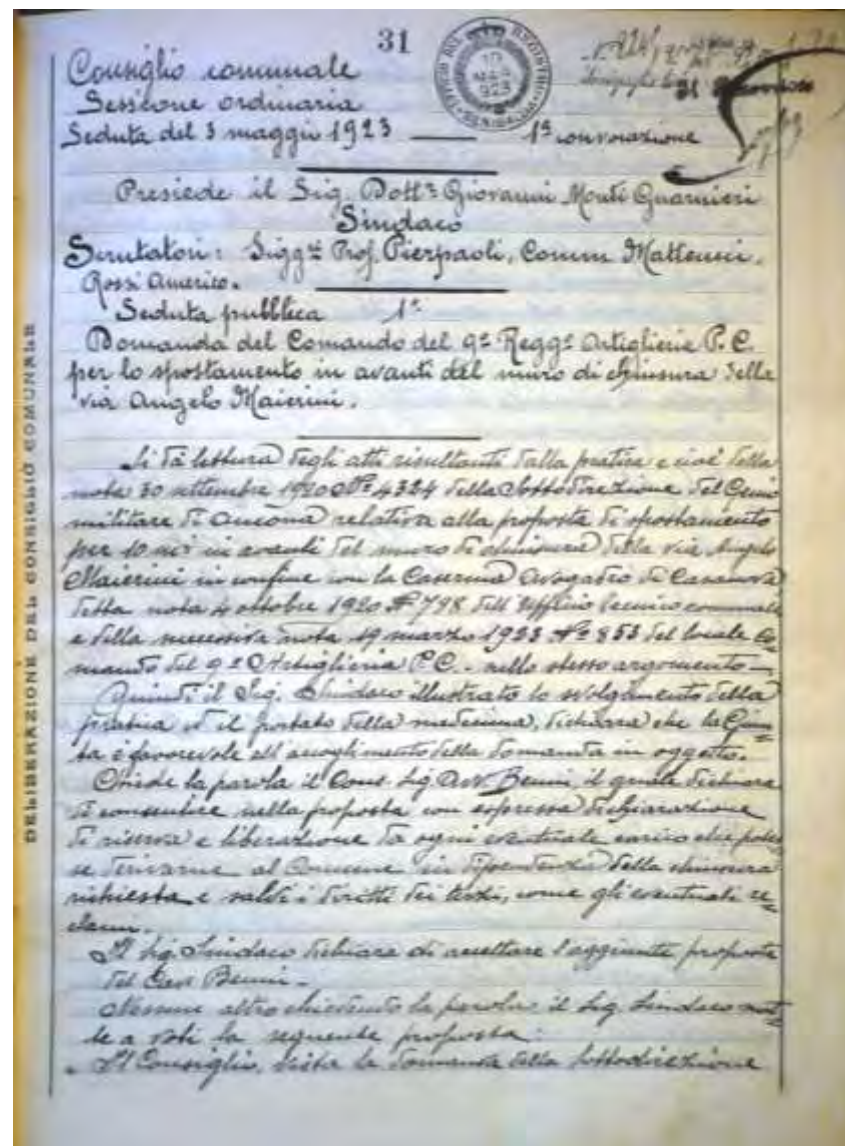 31
UFFICIO DEL REGISTRO
10
MAG
923
SENIGALLIA
Consiglio comunale
Sessione ordinaria
Seduta del 3 maggio 1923 — 1ª convocazione
Presiede il Sig. Dottr Giovanni Monti Guarnieri
Sindaco
Scrutatori: Sigg.ri Prof. Pierpaoli, Comm Matteucci,
Rossi Americo.
Seduta pubblica 1ª
Domanda del Comando del 9º Reggº Artiglieria P. C.
per lo spostamento in avanti del muro di chiusura della
via Angelo Maierini.
Si dà lettura degli atti risultanti dalla pratica e cioè della
nota 30 settembre 1920 Nº 4324 della Sottodirezione del Genio
militare di Ancona relativa alla proposta di spostamento
per 10 in avanti del muro di chiusura della via Angelo
Maierini in confine con la Caserma Avogadro di Casanova
detta nota 4 ottobre 1920 Nº 798 dell'Ufficio tecnico comunale
e della successiva nota 19 marzo 1923 Nº 853 del locale Co=
mando del 9º Artiglieria P.C. - nello stesso argomento —
Quindi il Sig. Sindaco illustrato lo svolgimento della
pratica ed il portato della medesima, dichiara che la Giun=
ta è favorevole all'accoglimento della domanda in oggetto.
Chiede la parola il Cons. Sig. Avv. Benni, il quale dichiara
di consentire nella proposta con espressa dichiarazione
di riserva e liberazione da ogni eventuale carico che potes
se derivarne al Comune in dipendenza della chiusura
richiesta e salvi i diritti dei terzi, come gli eventuali re=
clami.
Il Sig. Sindaco dichiara di accettare l'aggiunta proposta
del Benni -
Nessun altro chiedendo la parola il Sig. Sindaco met=
te a voti la seguente proposta:
"Il Consiglio, vista la domanda della Sottodirezione
DELIBERAZIONE DEL CONSIGLIO COMUNALE